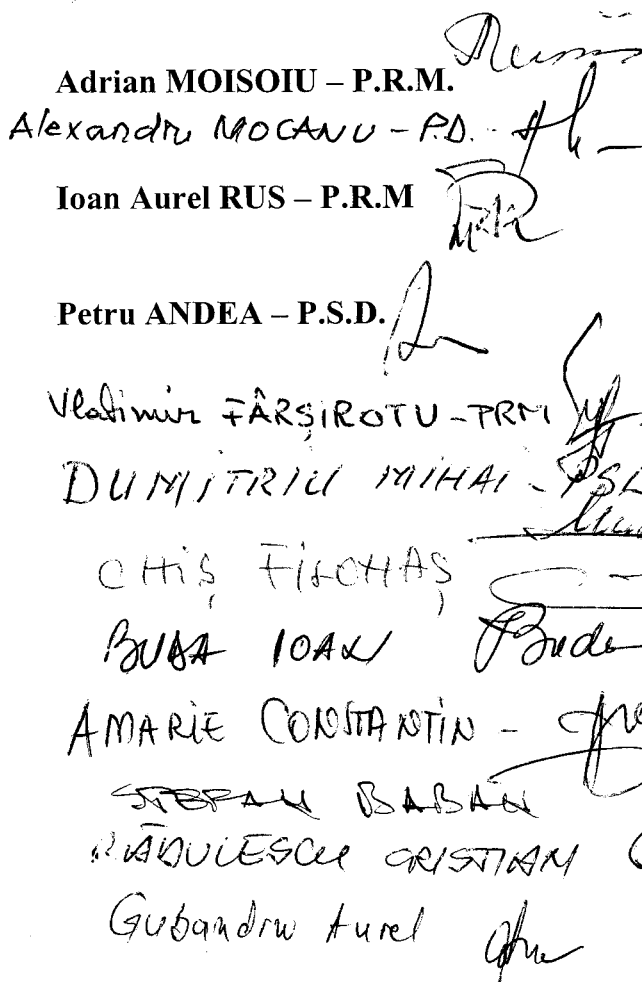 Adrian MOISOIU – P.R.M.
Alexandru MOCANU – P.D.
Ioan Aurel RUS – P.R.M
Petru ANDEA – P.S.D.
Vladimir FÂRȘIROTU – PRM
DUMITRIU MIHAI – PSD
CHIȘ
BUDA IOAN
AMARIE CONSTANTIN –
ȘTEFAN BABAN
RĂDULESCU CRISTIAN
Gubandru Aurel